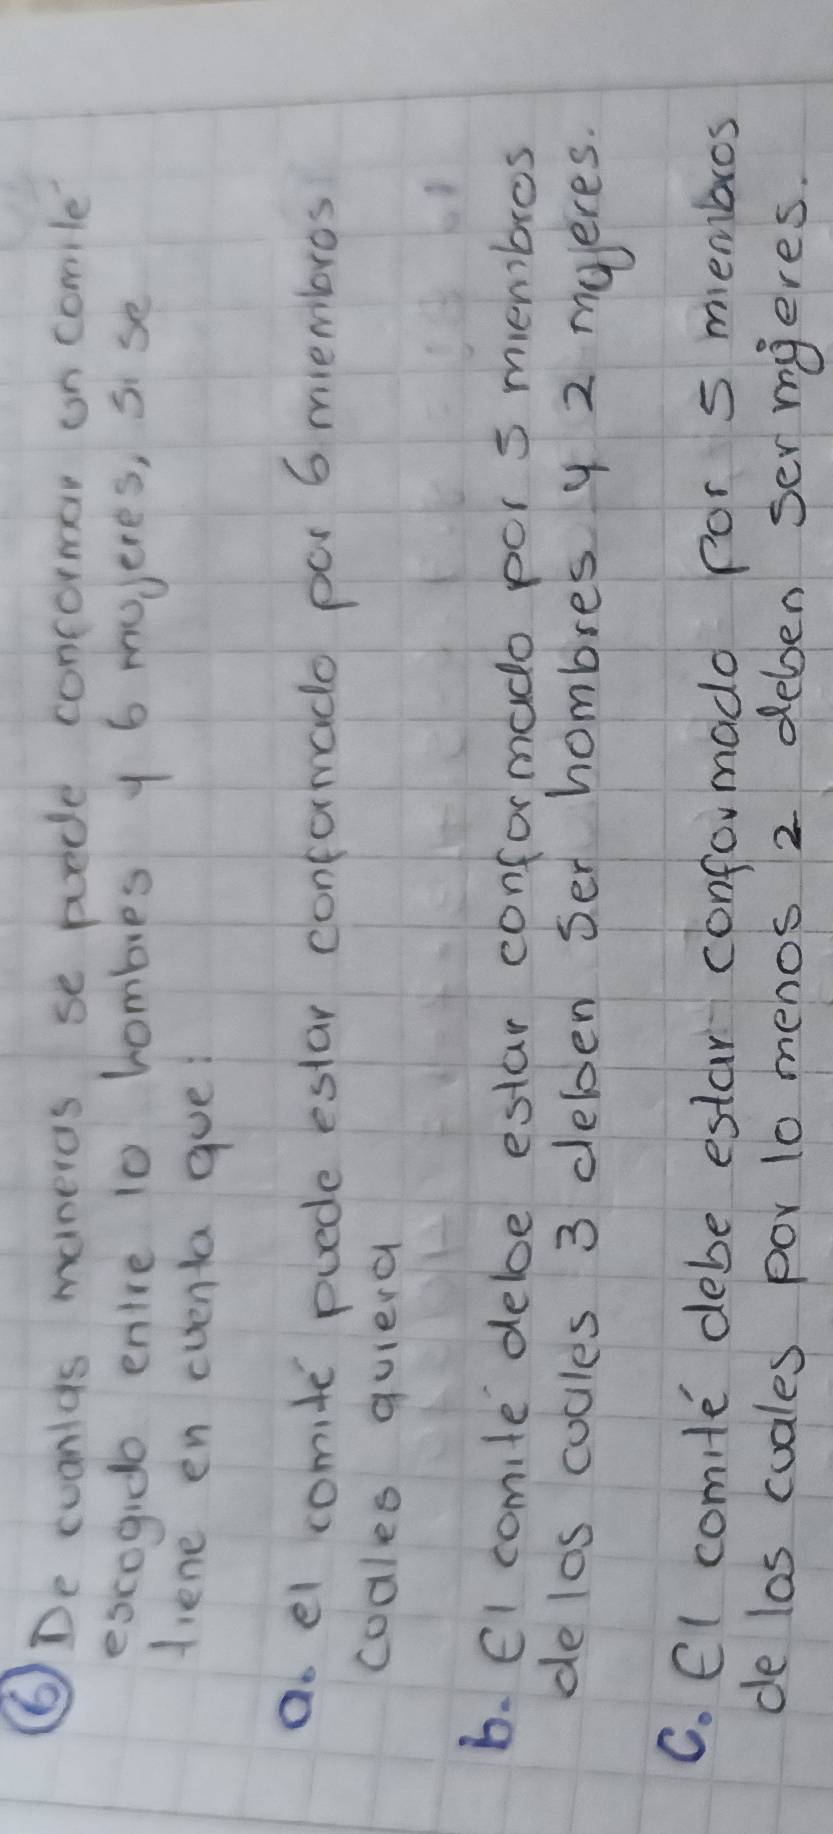 6 De cuantas maneras se puede conformar un comité
escogido entre 10 hombres y 6 mujeres, si se
tiene en cuenta que:
a. el comité puede estar conformado por 6 miembros
cuales quiera
b. El comité debe estar conformado por 5 miembros
de los cuales 3 deben ser hombres y 2 mujeres.
c. El comité debe estar conformado por 5 miembros
de los cuales por lo menos 2 deben ser mujeres.